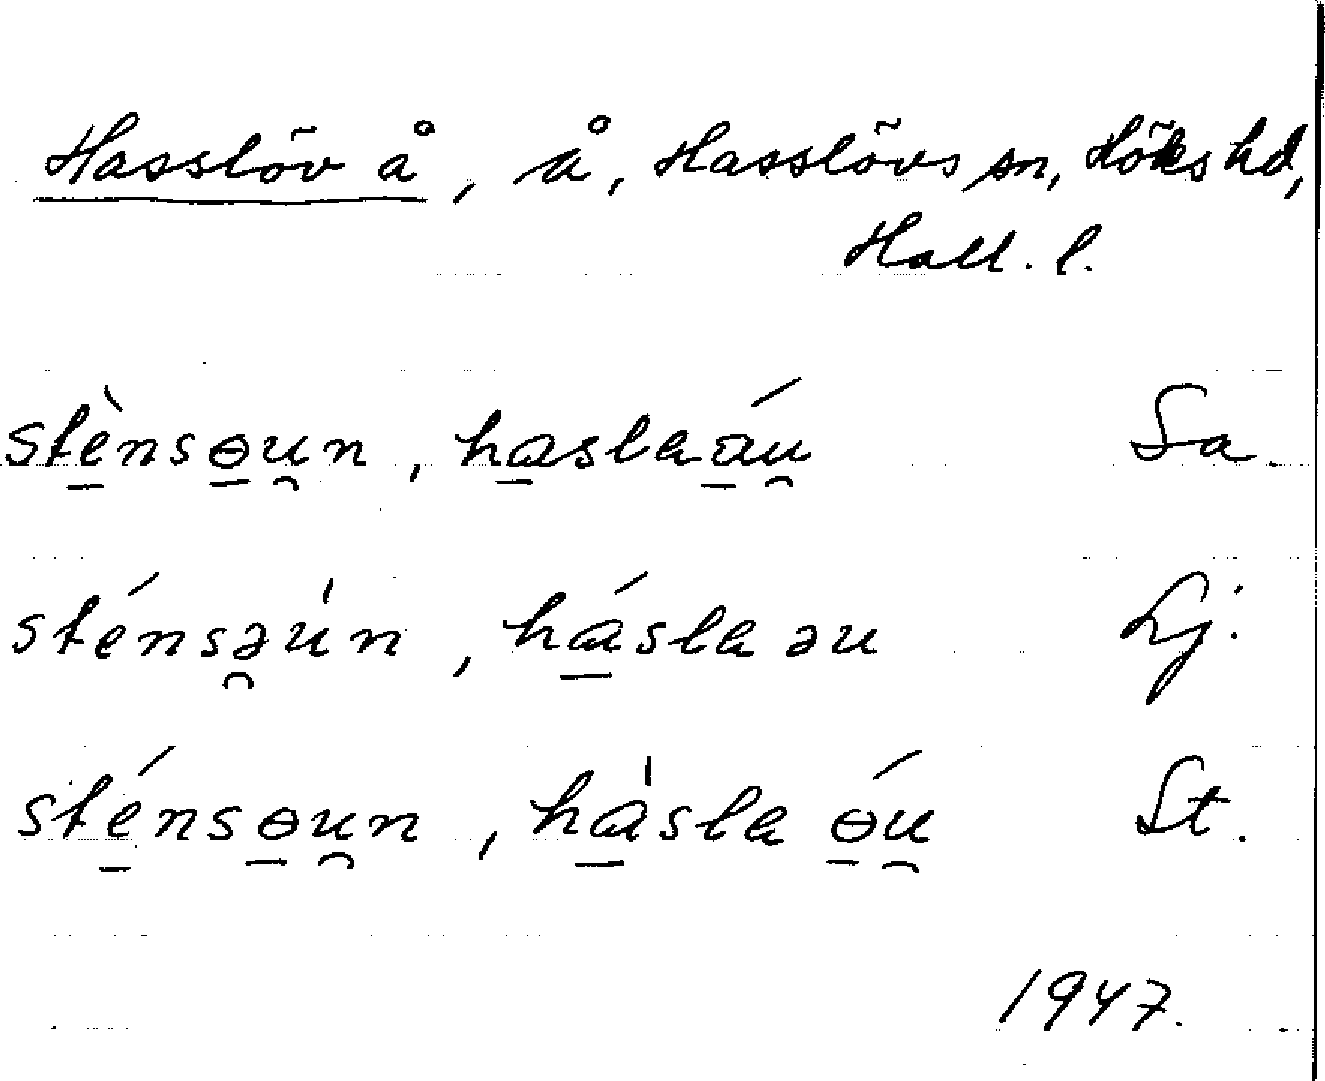 Hasslöv å, å, Hasslövs sn, Höks hd,
Hall. l.
stè̱nsɵ̱u̯n, ha̱slaá̱u̯ Sa.
sténsə̯ún, há̱slaəu Lj.
sté̱nsɵ̱u̯n, ha̱̍sla ɵ̱́u̯ St.
1947.